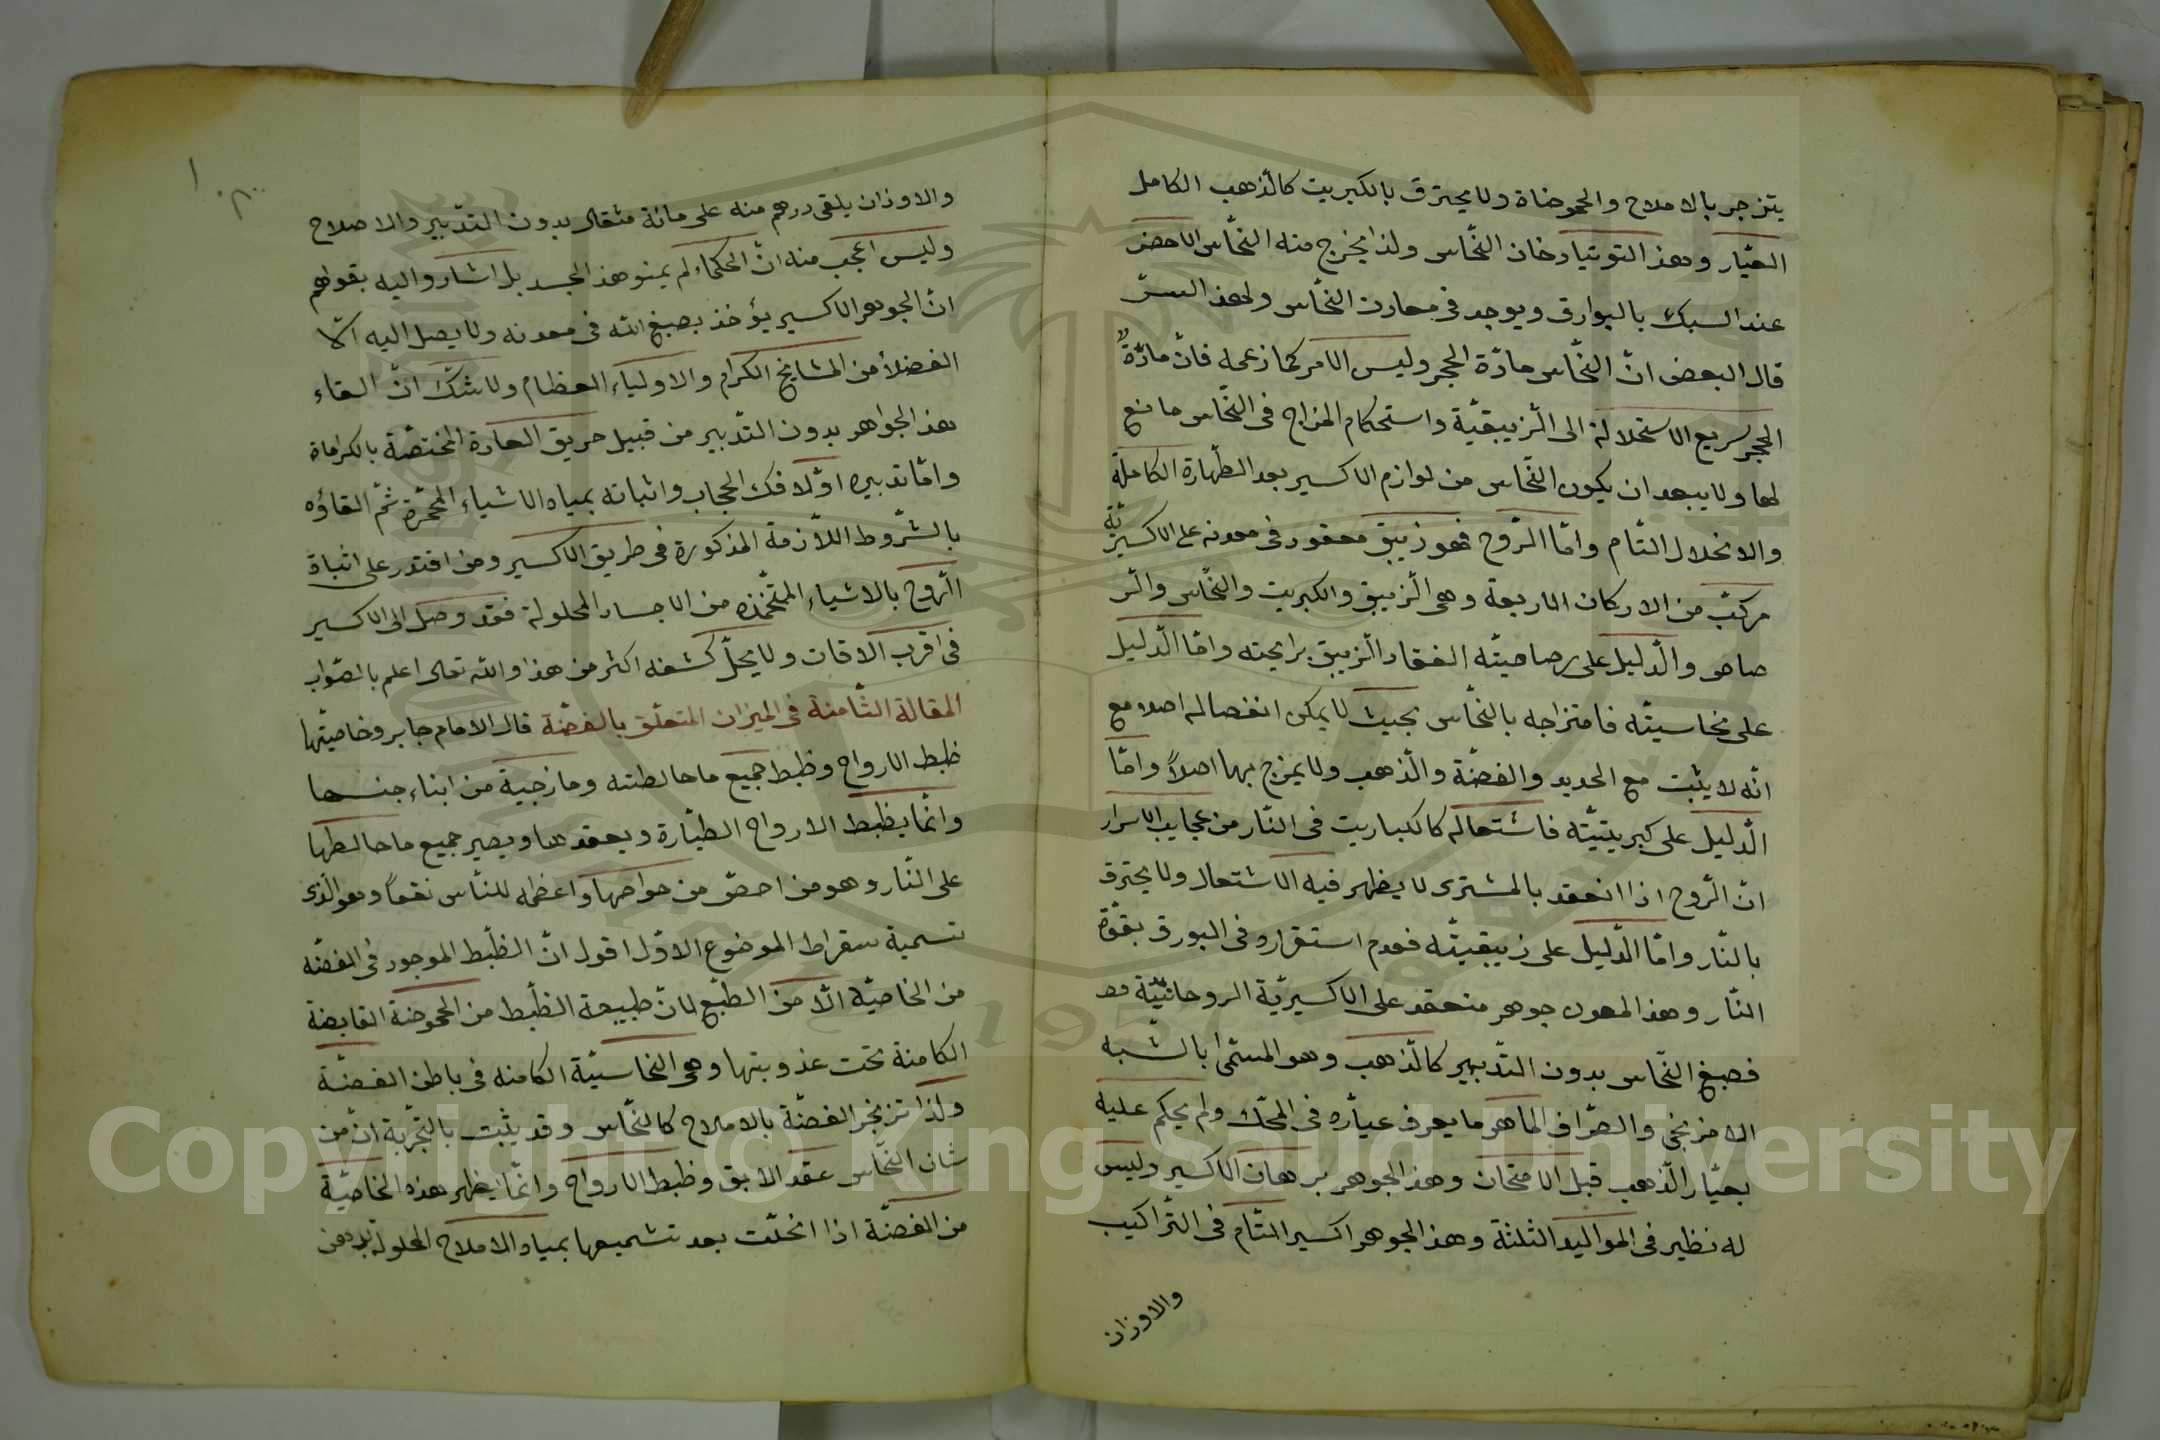 يتزجر بالاملاح والحموضاة ولا يحترق بالكبريت كالذهب الكامل
العيّار وهذ التوتيا دخان النحّاس ولذا يخرج منه النحّاس الاحضر
عند السبك بالبوارق ويوجد فى معادن النحّاس ولهذ السرّ
قال البعض انّ النحّاس مادّة الحجر وليس الامر كما زعمه فانّ مادّة
الحجر سريع الاستحلالة الى الزيبقيّة واستحكام المزاج فى النحّاس مانع
لها ولا يبعد ان يكون النحّاس من لوازم الاكسير بعد الطّهارة الكاملة
والانحلال التّام وامّا الرّوح فهو زيبق معقود فى معدنه على الاكسيريّة
مركّب من الاركان الاربعة وهى الزيبق والكبريت والنحّاس والرّ
صاص والدّليل على رصاصيّته انعقاد الزيبق برايحته وامّا الدّليل
على نحاسيّته فامتزاجه بالنحّاس بحيث لا يمكن انفصاله اصلا مع
انّه لا يثبت مع الحديد والفضّة والذّهب ولا يمزج بها اصلاً وامّا
الدّليل على كبريتيّته فاشتعاله كالكباريت فى النّار من عجايب الاسرار
انّ الرّوح اذا انعقد بالمشترى لا يظهر فيه الاشتعال ولا يحترق
بالنّار وامّا الدّليل على زيبقيّته فعدم استقراره فى البورق بقوّة
النّار وهذ المعدن جوهر منعقد على الاكسيريّة الروحانيّة
فصبغ النّحاس بدون التّدبير كالذّهب وهو المسمّى بالشبه
الافرنجى والصّراف الماهر ما يعرف عيّاره فى المحكّ ولم يحكم عليه
بعيّار الذّهب قبل الامتحان وهذ الجوهر برهان الاكسير وليس
له نظير فى المواليد الثلثة وهذ الجوهر اكسير التّام فى التّراكيب
والاوزان
والاوزان يلقى درهم منه على مائة مثقال بدون التدّبير والاصلاح
وليس اعجب منه انّ الحكماء لم يمنو هذ الجسد بل اشاروا اليه بقولهم
انّ الجوهر الاكسير يؤخذ بصبغ الله فى معدنه ولا يصل اليه الّا
الفضلأ من المشايخ الكرام والاولياء العظام ولا شكّ انّ القاء
هذ الجواهر بدون التّدبير من قبيل حريق العادة المختصّة بالكراماة
وامّا تدبيره اوّلا فكّ الحجاب واثباته بمياه الاشياء المحمّرة ثمّ القاؤه
بالشّروط اللّازمة المذكورة فى طريق الاكسير ومن اقتدر على اثباة
الرّوح بالاشياء المتّخذه من الاجساد المحلولة فقد وصل الى الاكسير
فى اقرب الاقات ولا يحلّ كشفه اكثر من هذا والله تعالى اعلم بالصّواب
المقالة الثّامنة فى الميزان المتعلّق بالفضّة قال الامام جابر وخاصيّتها
ظبط الارواح وظبط جميع ما خالطته ومازجية من ابناء جنسها
وانّما يظبط الارواح الطيّارة ويعقدها ويصير جميع ما خالطها
على النّار وهو من احصّ من خواصها واعظمه للنّاس نفعاً وهو الّذى
تسمية سقراط الموضوع الاوّل اقول انّ الظّبط الموجود فى الفضّه
من الخاصيّة الّا من الطبّع لانّ طبيعة الظّبط من الحموضة القابضة
الكامنة تحت عذوبتها وهى النحاسيّة الكامنه فى باطن الفضّة
ولذا تزنجر الفضّة بالاملاح كالنّحاس وقد يثبت بالتجّربة انّ من
شان النحّاس عقد الابق وظبط الارواح وانّما يظهر هذه الخاصيّة
من الفضّة اذا انحلّت بعد تشميعها بمياه الاملاح المحلولة